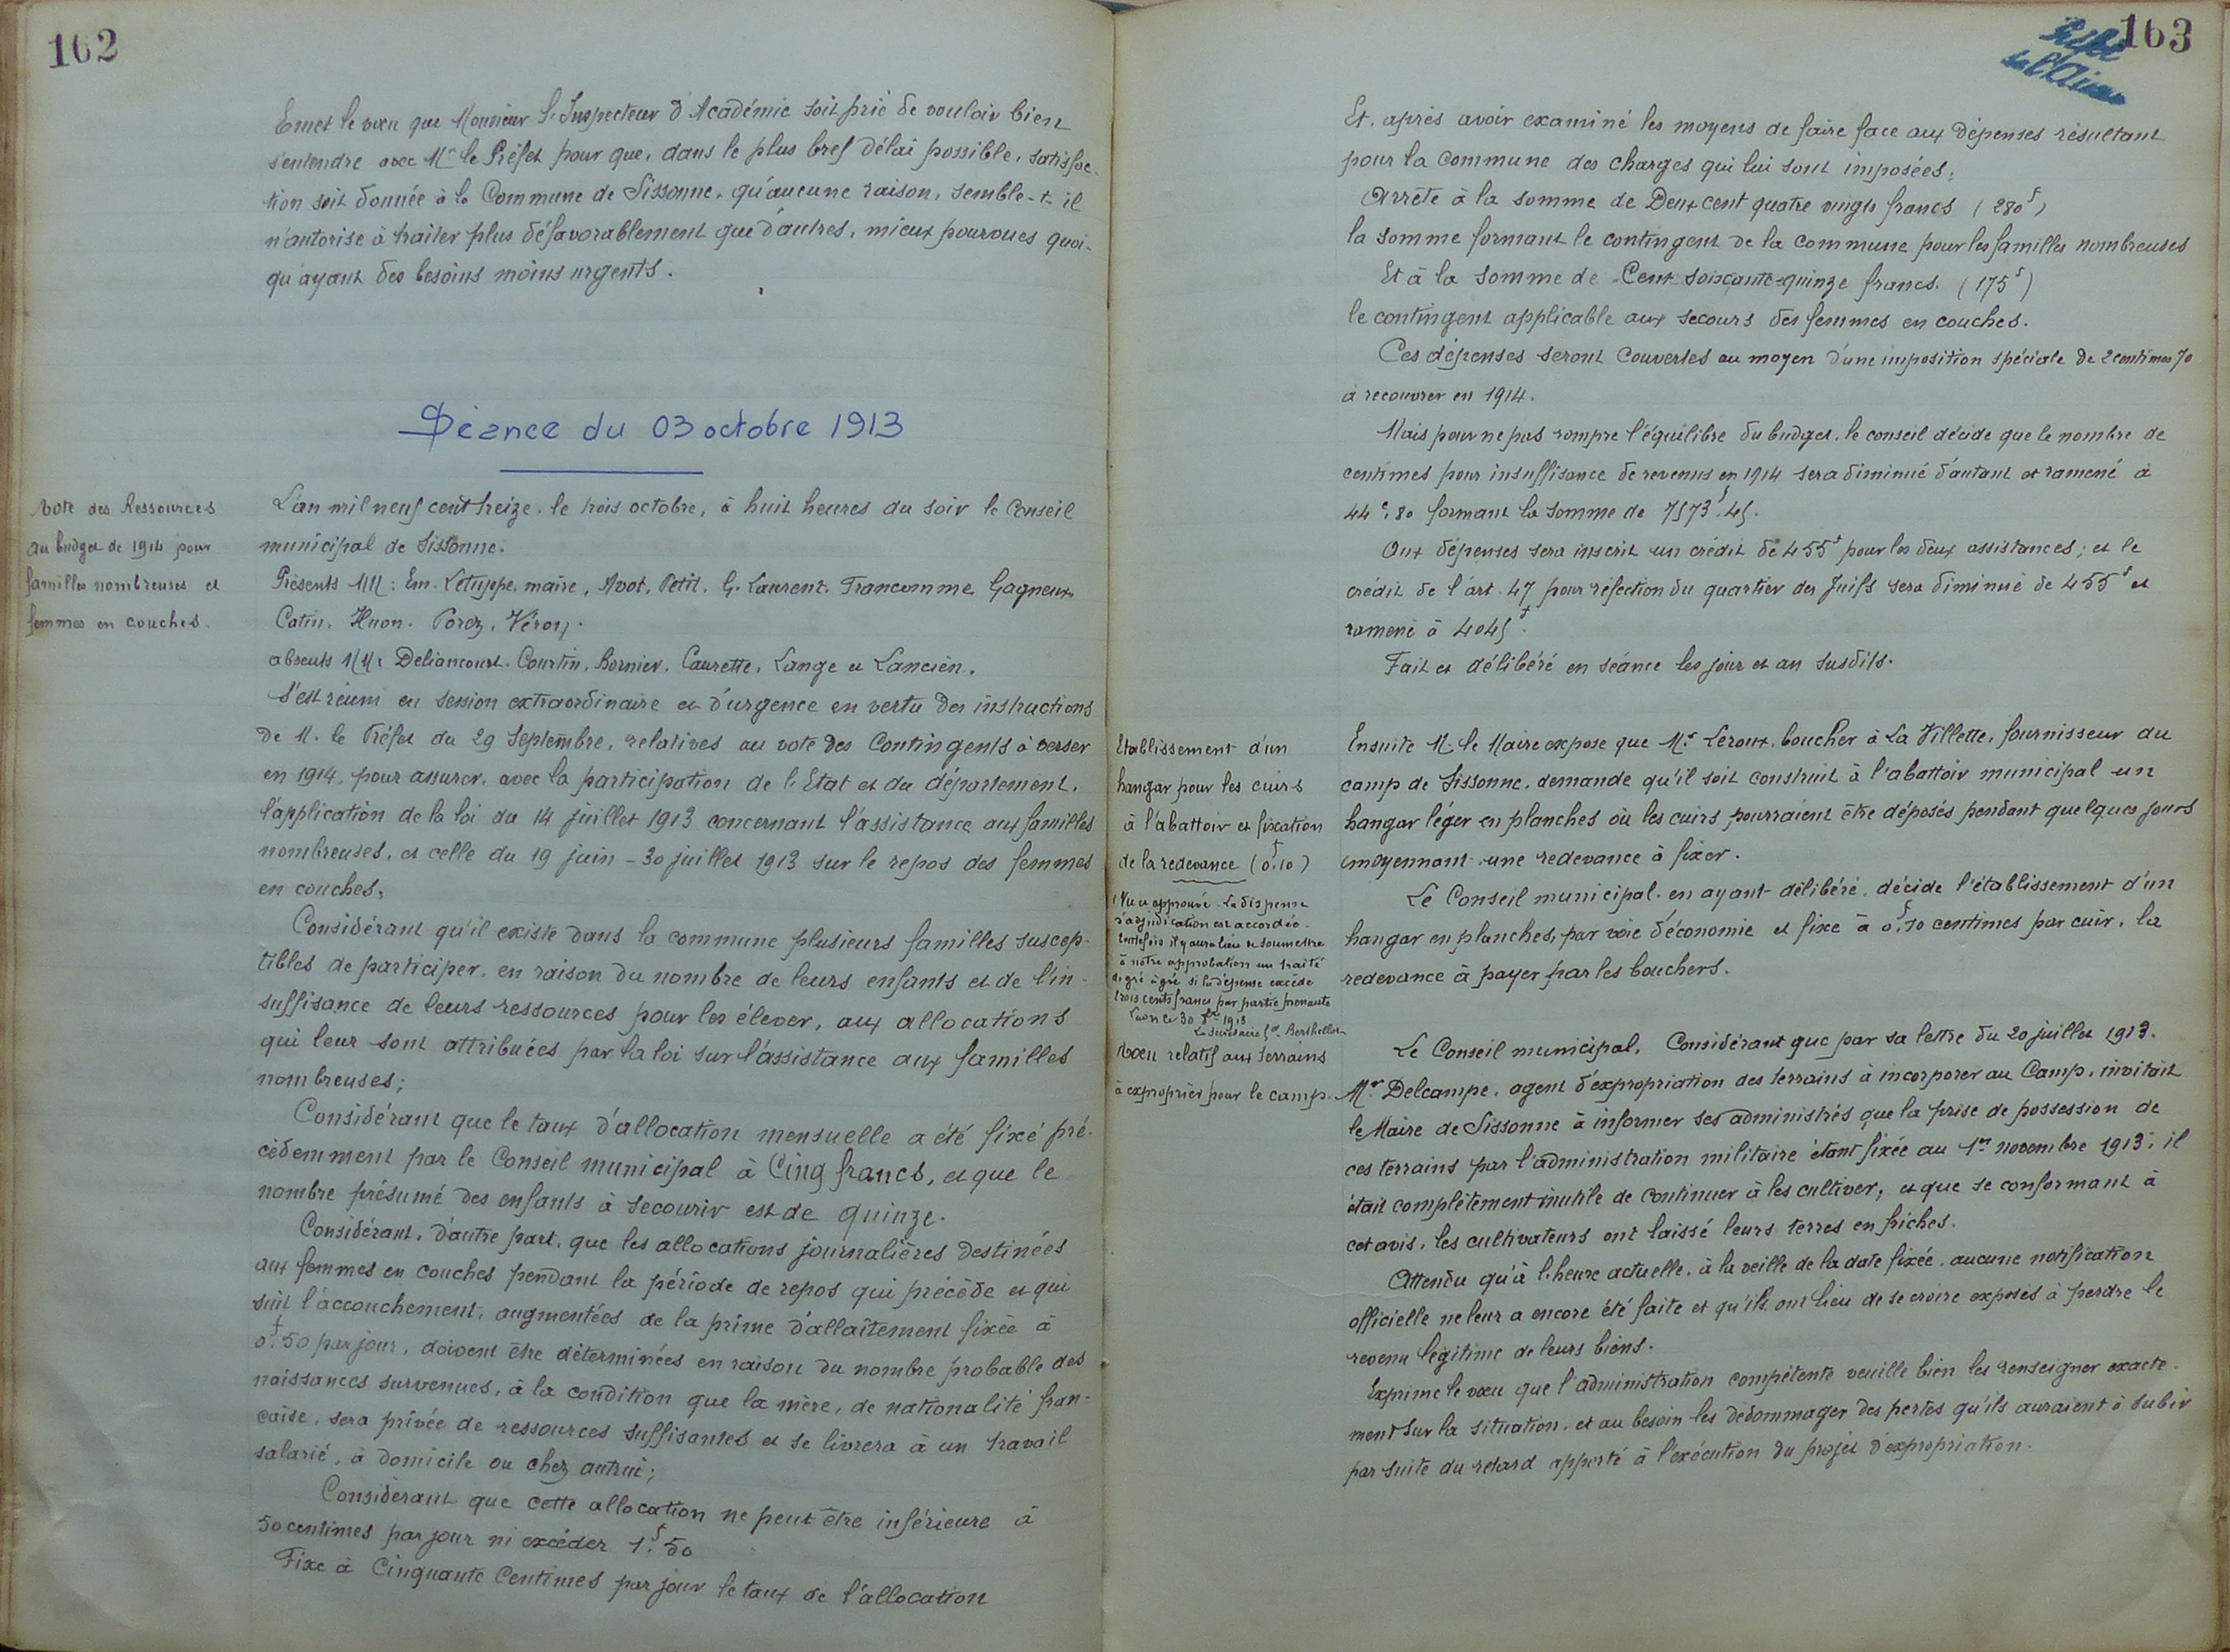 162
Emet le vœu que Monsieur l'Inspecteur d'Académie soit prié de vouloir bien
s'entendre avec Mr le Préfet pour que, dans le plus bref délai possible, satisfac-
tion soit donnée à la Commune de Sissonne, qu'aucune raison, semble-t-il
n'autorise à traiter plus défavorablement que d'autres, mieux pourvues quoi-
qu'ayant des besoins moins urgents.
Séance du 03 octobre 1913
Vote des Ressources
au budget de 1914 pour
familles nombreuses et
femmes en couches.
L'an mil neuf cent treize, le trois octobre, à huit heures du soir le Conseil
municipal de Sissonne.
Présents MM : Em. Letuppe, maire, Avot, Petit, G. Laurent, Francomme, Gagneux,
Catin, Huon, Porez, Véron.
absents MM. Deliancourt, Courtin, Bornier, Caurette, Lange et Lancien.
S'est réuni en session extraordinaire et d'urgence en vertu des instructions
de M. le Préfet du 29 Septembre, relatives au vote des Contingents à verser
en 1914, pour assurer, avec la participation de l'Etat et du département,
l'application de la loi du 14 juillet 1913 concernant l'assistance aux familles
nombreuses, et celle du 19 juin - 30 juillet 1913 sur le repos des femmes
en couches,
Considérant qu'il existe dans la commune plusieurs familles suscep-
tibles de participer, en raison du nombre de leurs enfants et de l'in-
suffisance de leurs ressources pour les élever, aux allocations
qui leur sont attribuées par la loi sur l'assistance aux familles
nombreuses;
Considérant que le taux d'allocation mensuelle a été fixé pré-
cèdemment par le Conseil municipal à Cinq francs, et que le
nombre présumé des enfants à secourir est de quinze.
Considérant, d'autre part, que les allocations journalières destinées
aux femmes en couches pendant la période de repos qui précède et qui
suit l'accouchement, augmentées de la prime d'allaitement fixée à
0f.50 par jour, doivent être déterminées en raison du nombre probable des
naissances survenues, à la condition que la mère, de nationalité fran-
çaise, sera privée de ressources suffisantes et se livrera à un travail
salarié, à domicile ou chez autrui;
Considérant que cette allocation ne peut être inférieure à
50 centimes par jour ni excéder 1f.50
Fixe à Cinquante Centimes par jour le taux de l'allocation
163
de l'Aisne
Et, après avoir examiné les moyens de faire face aux dépenses résultant
pour la Commune des charges qui lui sont imposées;
Arrête à la somme de Deux cent quatre vingts francs (280f)
la somme formant le contingent de la commune pour les familles nombreuses
Et à la somme de Cent soixante-quinze francs. (175f)
le contingent applicable aux secours des femmes en couches.
Ces dépenses seront couvertes au moyen d'une imposition spéciale de 2 centimes 70
à recouvrer en 1914.
Mais pour ne pas rompre l'équilibre du budget, le conseil décide que le nombre de
centimes pour insuffisance de revenus en 1914 sera diminué d'autant et ramené à
44c,80 formant la somme de 7573f.45.
Aux dépenses sera inscrit un crédit de 455f pour les deux assistances; et le
crédit de l'art. 47 pour réfection du quartier des Juifs sera diminué de 455f et
ramené à 4045f.
Fait et délibéré en séance les jour et an susdits.
Etablissement d'un
hangar pour les cuirs
à l'abattoir et fixation
de la redevance (0f.10)
Vu et approuvé. La dispense
d'adjudication est accordée.
toutefois il y aura lieu de soumettre
à notre approbation un traité
de gré à gré si la dépense excède
trois cents francs par partie prenante
Laon le 30 8bre 1913
Le Secrétaire Gal Berthellot
Ensuite M. le Maire expose que Mr Leroux, boucher à La Villette, fournisseur du
camp de Sissonne, demande qu'il soit construit à l'abattoir municipal un
hangar léger en planches où les cuirs pourraient être déposés pendant quelques jours
moyennant une redevance à fixer.
Le Conseil municipal en ayant délibéré, décide l'établissement d'un
hangar en planches, par voie d'économie et fixe à 0f.10 centimes par cuir, la
redevance à payer par les bouchers.
Vœu relatif aux terrains
à exproprier pour le camp.
Le Conseil municipal, Considérant que par sa lettre du 20 juillet 1913.
Mr Delcampe, agent d'expropriation des terrains à incorporer au Camp, invitait
le Maire de Sissonne à informer ses administrés que la prise de possession de
ces terrains par l'administration militaire étant fixée au 1er novembre 1913, il
était complètement inutile de continuer à les cultiver, et que se conformant à
cet avis, les cultivateurs ont laissé leurs terres en friches.
Attendu qu'à l'heure actuelle, à la veille de la date fixée, aucune notification
officielle ne leur a encore été faite et qu'ils ont lieu de se croire exposés à perdre le
revenu légitime de leurs biens.
Exprime le vœu que l'administration compétente veuille bien les renseigner exacte-
ment sur la situation, et au besoin les dédommager des pertes qu'ils auraient à subir
par suite du retard apporté à l'exécution du projet d'expropriation.